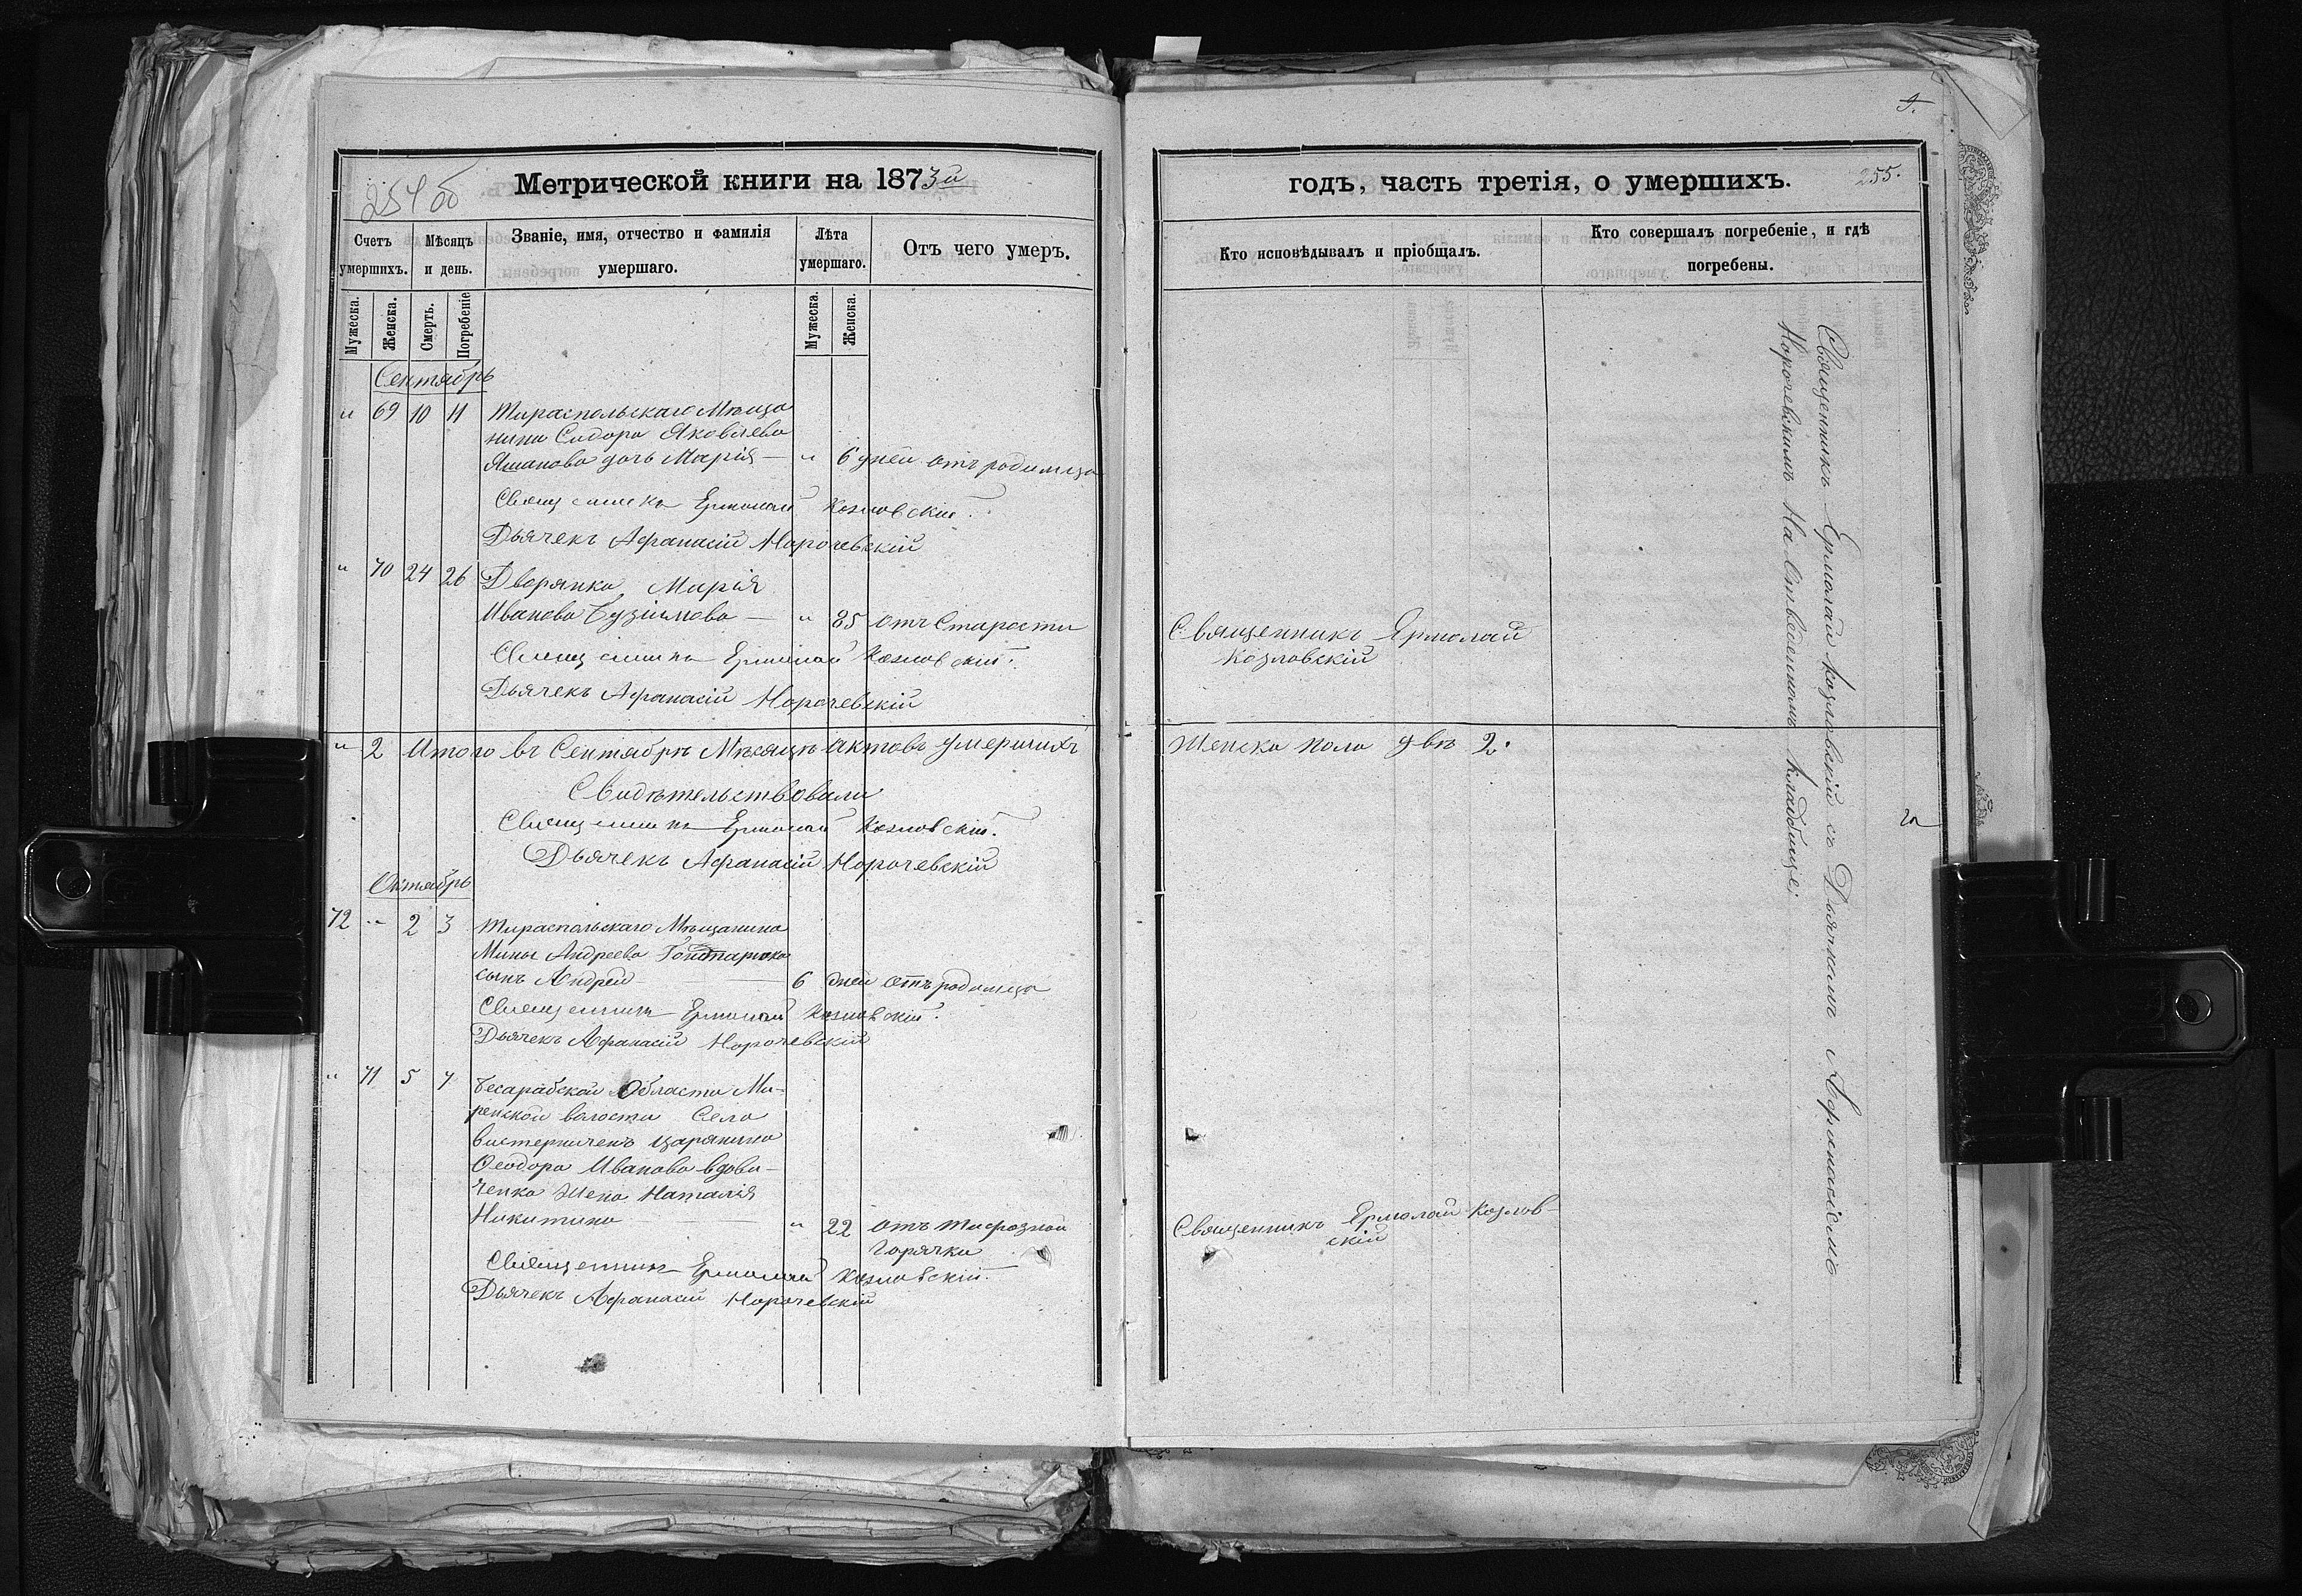 254 об
Метрической книги на 1873й
Счетъ умершихъ.
Мѣсяцъ и день.
Званіе, имя, отчество и фамилія умершаго.
Лѣта умершаго.
Отъ чего умеръ.
Мужеска.
Женска.
Смерть.
Погребеніе
Мужеска.
Женска.
Сентябрь
" 69 10 11 Тираспольскаго Мѣща
нина Сидора Яковлева
дочь Марія — " 6 дней отъ родимца
Священникъ Ермолай Козловскій.
Дьячекъ Афанасій Норочевскій
" 70 24 26 Дворянка Марія
Иванова — " 85 отъ Старости
Священникъ Ермолай Козловскій.
Дьячекъ Афанасій Норочевскій
" 2 Итого въ Сентябрѣ Мѣсяцѣ актовъ умершихъ
Свидѣтельствовали
Священникъ Ермолай Козловскій.
Дьячекъ Афанасій Норочевскій
Октябрь
72 " 2 3 Тираспольскаго Мѣщанина
Мины Андреева Гонтарюка
сынъ Андрей — 6 дней отъ родимца
Священникъ Ермолай Козловскій.
Дьячекъ Афанасій Норочевскій
" 71 5 7 Бесарабской Области Ми-
ренской волости Села
Вистерниченъ царянина
Ѳеодора Иванова вдови-
ченка жена Наталія
Никитина " 22 отъ тифозной
горячки
Священникъ Ермолай Козловскій.
Дьячекъ Афанасій Норочевскій
9.
годъ, часть третія, о умершихъ.
255.
Кто исповѣдывалъ и пріобщалъ.
Кто совершалъ погребеніе, и гдѣ
погребены.
Священникъ Ермолай
Козловскій
Женска пола двѣ 2.
Священникъ Ермолай Козлов-
скій
Священникъ Ермолай Козловскій съ Дьячкомъ Афанасіемъ
Норочевскимъ На отведенномъ кладбищѣ